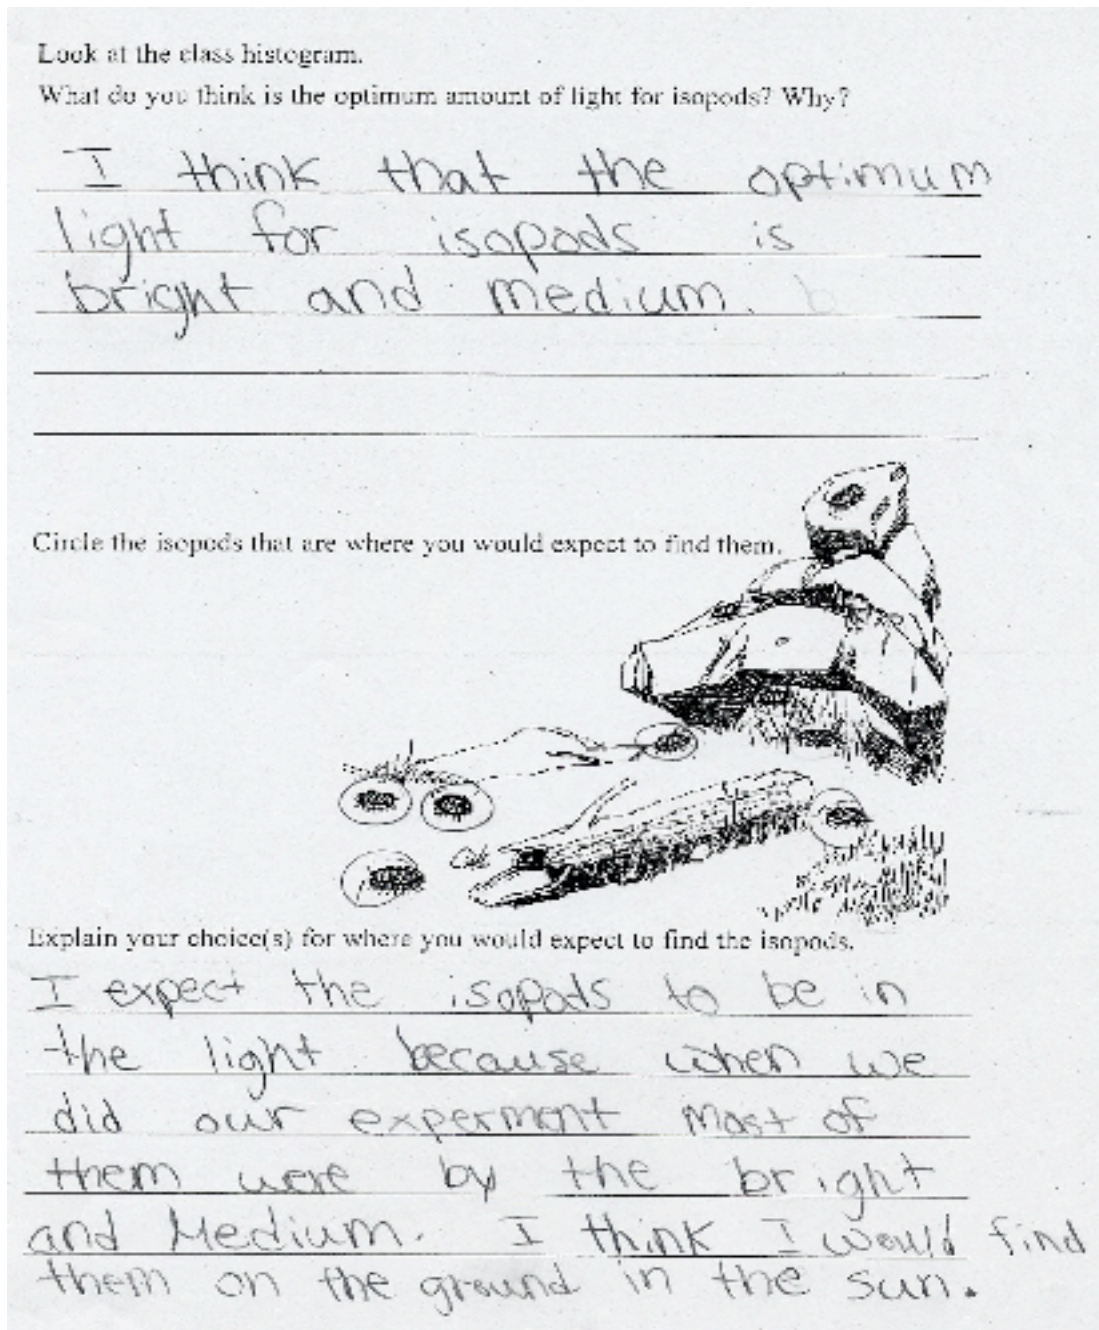 Look at the class histogram.
What do you think is the optimum amount of light for isopods? Why?
I think that the optimum
light for isopods is
bright and medium. b
Circle the isopods that are where you would expect to find them.
Explain your choice(s) for where you would expect to find the isopods.
I expect the isopods to be in
the light because when we
did our experment most of
them were by the bright
and Medium. I think I would find
them on the ground in the sun.